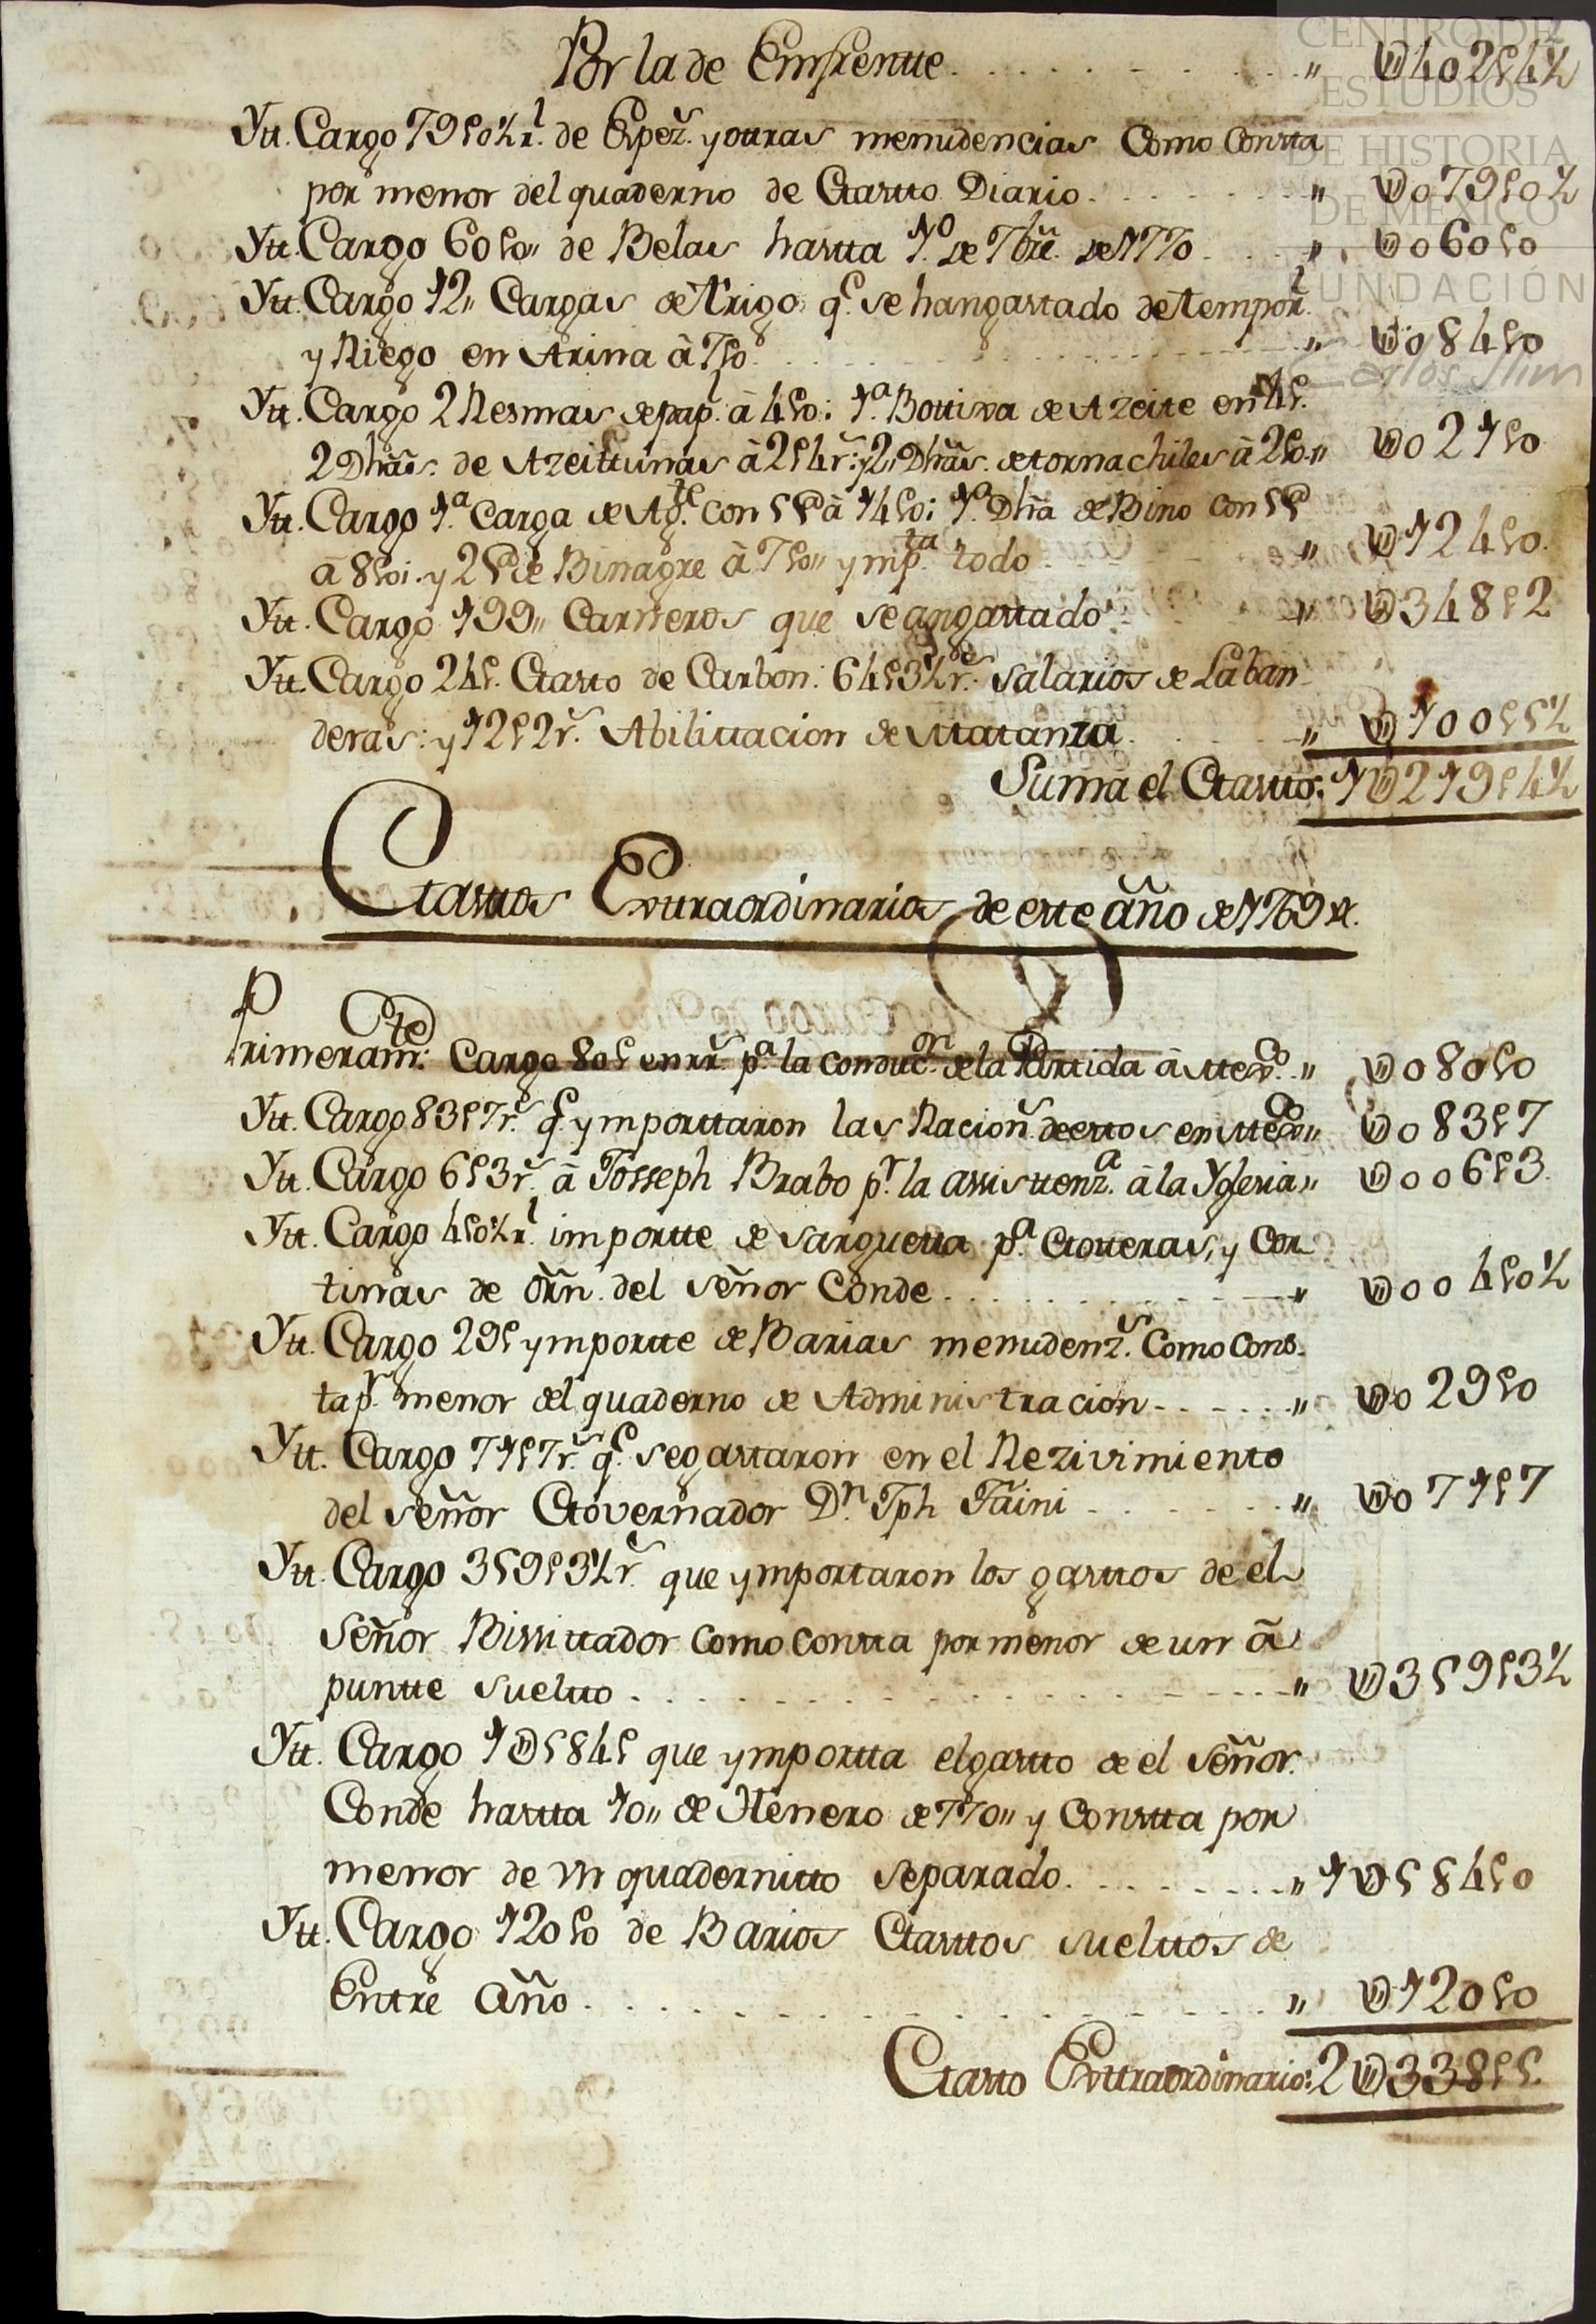 CENTRO DE
ESTUDIOS
DE HISTORIA
DE MÉXICO
FUNDACIÓN
Carlos Slim
Por la de Emfrentte " U402$4½
Ytt. Cargo 79$0½rl. de Espezs. y otras menudencias Como Constta
por menor del quaderno de Gastto Diario " U079$0½
Ytt. Cargo 60$0" de Belas hastta 1o. de 7bre. de 1770 " U060$0
Ytt. Cargo 12" Cargas de trigo qe. se han gastado de temporl.
y Riego en Arina à 7$0 " U084$0
Ytt. Cargo 2 Resmas de papl. à 4$0: 1a. Bottixa de Azeite en 4$.
2 Dhãs. de Azeittunas à 2$4rs: y 2" Dhãs. de tornachiles à 2$0" U021$0
Ytt. Cargo 1a. Carga de Agte. con 5@ à 14$0; 1a. Dhã de Bino con 5@
à 8$0; y 2@ de Binagre à 7$0" y mpta. todo " U124$0
Ytt. Cargo 199" Carneros que se an gastado " U348$2
Ytt. Cargo 24$. Gasto de Carbon: 64$3½rs. de Salarios de Laban
deras: y 12$2rs. Abilittacion de Matanza " U100$5½
Suma el Gastto: 1U219$4½
Gasttos Exttraordinarios de este año de 1769 a.
Primeramte: Cargo 80$ en rrs. pa. la conduccon. de la Partida à Mexco. " U080$0
Ytt. Cargo 83$7rs. qe. ymporttaron las Racions. de estos en Mexco " U083$7
Ytt. Cargo 6$3rs. à Josseph Brabo pr. la assisttenza. à la Yglesia " U006$3
Ytt. Cargo 4$0½rl. importte de sarguetta pa. Gotteras, y Cor
tinas de orñ. del señor Conde " U004$0½
Ytt. Cargo 29$ ymportte de Barias menudenzs. Como Cons-
ta pr. menor del quaderno de Administracion " U029$0
Ytt. Cargo 71$7rs. qe. se gastaron en el Rezivimiento
del señor Governador Dn. Jph Faini " U071$7
Ytt. Cargo 359$3½rs. que ymportaron los gasttos de el
Señor Bissittador Como Constta por menor de un à
puntte sueltto " U359$3½
Ytt. Cargo 1U584$ que ymportta el gastto de el señor.
Conde hastta 10" de Henero de 770" y Constta por
menor de Vn quadernitto separado " 1U584$0
Ytt. Cargo 120$0 de Barios Gasttos sueltos de
Entre Año " U120$0
Gasto Exttraordinario: 2U338$5.